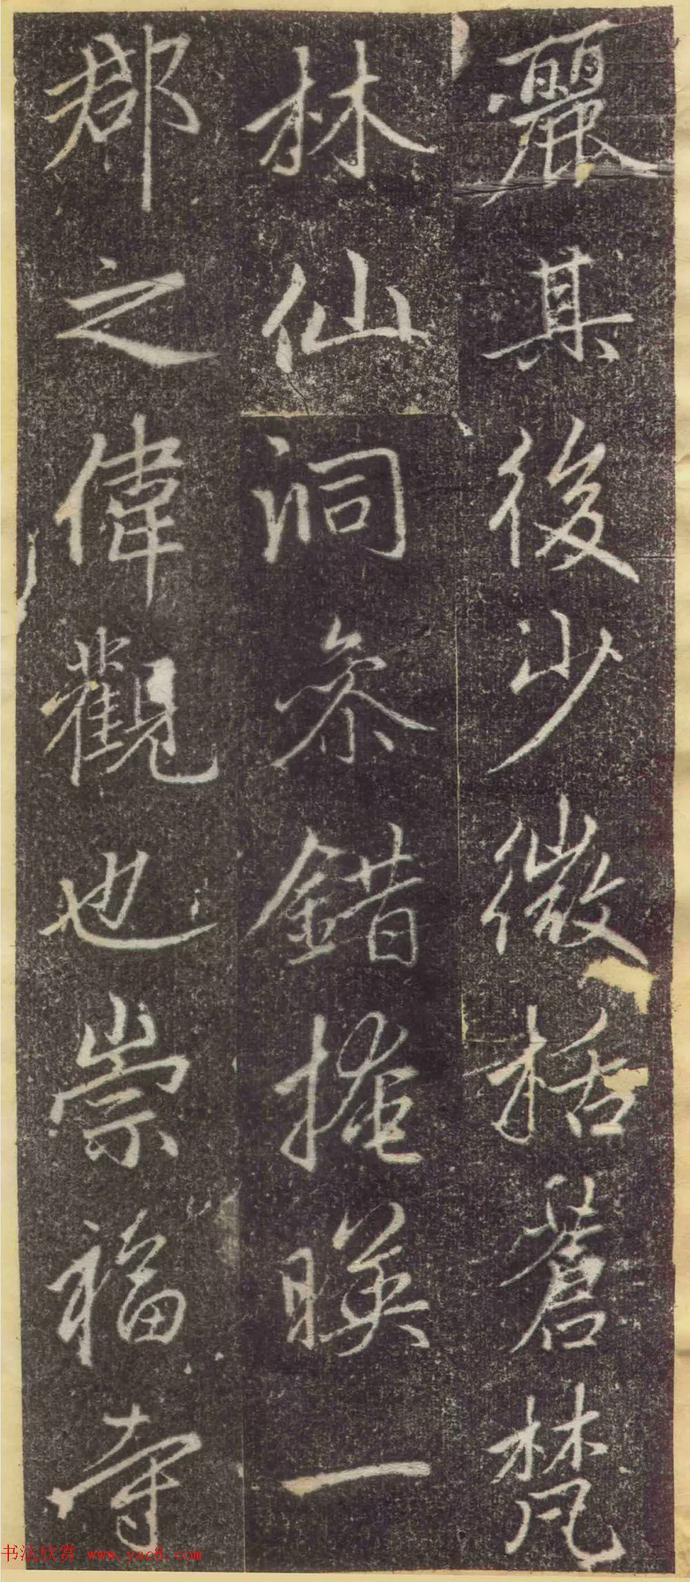 麗其後少微括蒼梵
林仙洞參錯掩暎一
郡之偉觀也崇福寺
书法欣赏 www.yac8.com